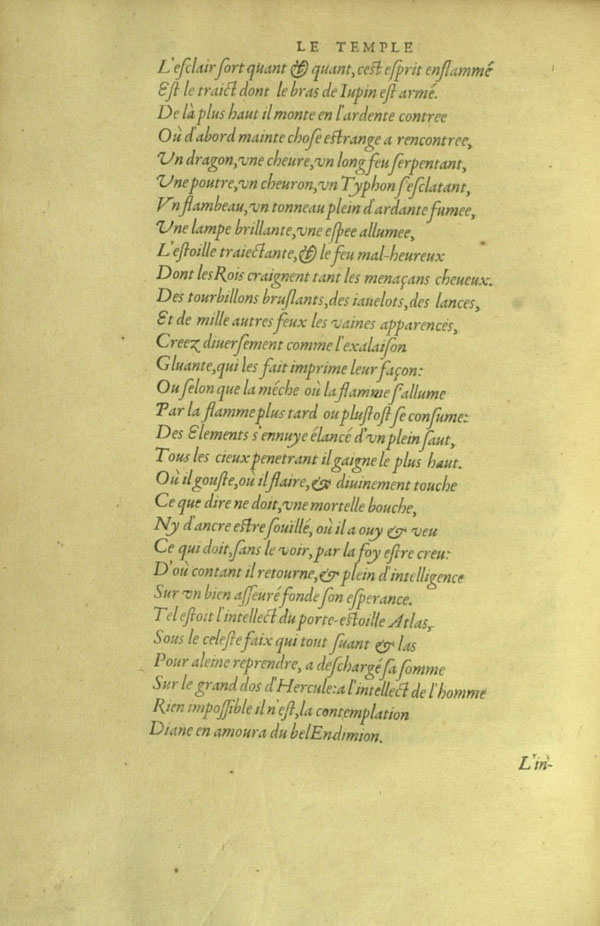 LE TEMPLE
L'eſclair ſort quant & quant, ceſt eſprit enflammé
Eſt le traict dont le bras de Iupin eſt armé.
De là plus haut il monte en l'ardente contree
Où d'abord mainte choſe eſtrange a rencontree,
Vn dragon, vne cheure, vn long feu ſerpentant,
Vne poutre, vn cheuron, vn Typhon s'eſclatant,
Vn flambeau, vn tonneau plein d'ardante fumee,
Vne lampe brillante, vne eſpee allumee,
L'eſtoille traiectante, & le feu mal-heureux
Dont les Rois craignent tant les menaçans cheueux.
Des tourbillons bruſlants, des iauelots, des lances,
Et de mille autres feux les vaines apparences,
Creez diuerſement comme l'exalaiſon
Gluante, qui les fait imprime leur façon:
Ou ſelon que la méche où la flamme s'allume
Par la flamme plus tard ou pluſtoſt ſe conſume:
Des Elements s'ennuye élancé d'vn plein ſaut,
Tous les cieux penetrant il gaigne le plus haut.
Où il gouſte, où il flaire, & diuinement touche
Ce que dire ne doit, vne mortelle bouche,
Ny d'ancre eſtre ſouillé, où il a ouy & veu
Ce qui doit, ſans le voir, par la foy eſtre creu:
D'où contant il retourne, & plein d'intelligence
Sur vn bien aſſeuré fonde ſon eſperance.
Tel eſtoit l'intellect du porte-eſtoille Atlas,
Sous le celeſte faix qui tout ſuant & las
Pour aleine reprendre, a deſchargé ſa ſomme
Sur le grand dos d'Hercule: a l'intellect de l'homme
Rien impoſſible il n'eſt, la contemplation
Diane en amoura du bel Endimion.
L'in-